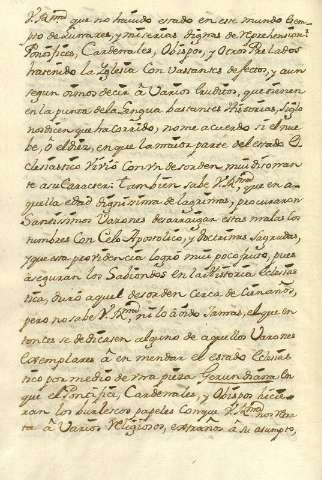 V. Rma que no ha havido estado en este mundo exem-
pto de lunares, y miserias dignas de reprehension:
Ponotifices, Cardenales, Obispos, y Otros Prelados
ha tenido la Yglesia con vastantes defectos, y aun
segun oimos decir à Varios Eruditos, que tienen
en la punta de la Lengua bastantes Historias, siglo
nos dicen que ha corrido, no me acuerdo si el nue
be, ò el diez, en que la maior parte del estado E
clesiastico Vivió con un desorden mui disonan
te a su Caracter: tambien sabe V. Rma, que en a-
quella edad dignissima de lagrimas, procuraron
Santissimos Varones desarraigar estas malas cos
tumbres con Celo Apostolico, y doctrinas sagradas,
y que esta providencia logró mui poco fruto, pues
aseguran los Sabiondos en la Historia Eclesias
tica, duró aquel desorden cerca de cien años,
pero no sabe V. Rma ni lo à oido Jamas, el que en
tonces se dedicasen alguno de aquellos Varones
Exemplares à enmendar el estado Eclesias
tico por medio de una pieza Gerundiana en
que el Pontifice, Cardenales, y Obispos hicie-
ran los burlescos papeles con que V. Rma nos
à Varios Religiosos, extraños à su asumpto,